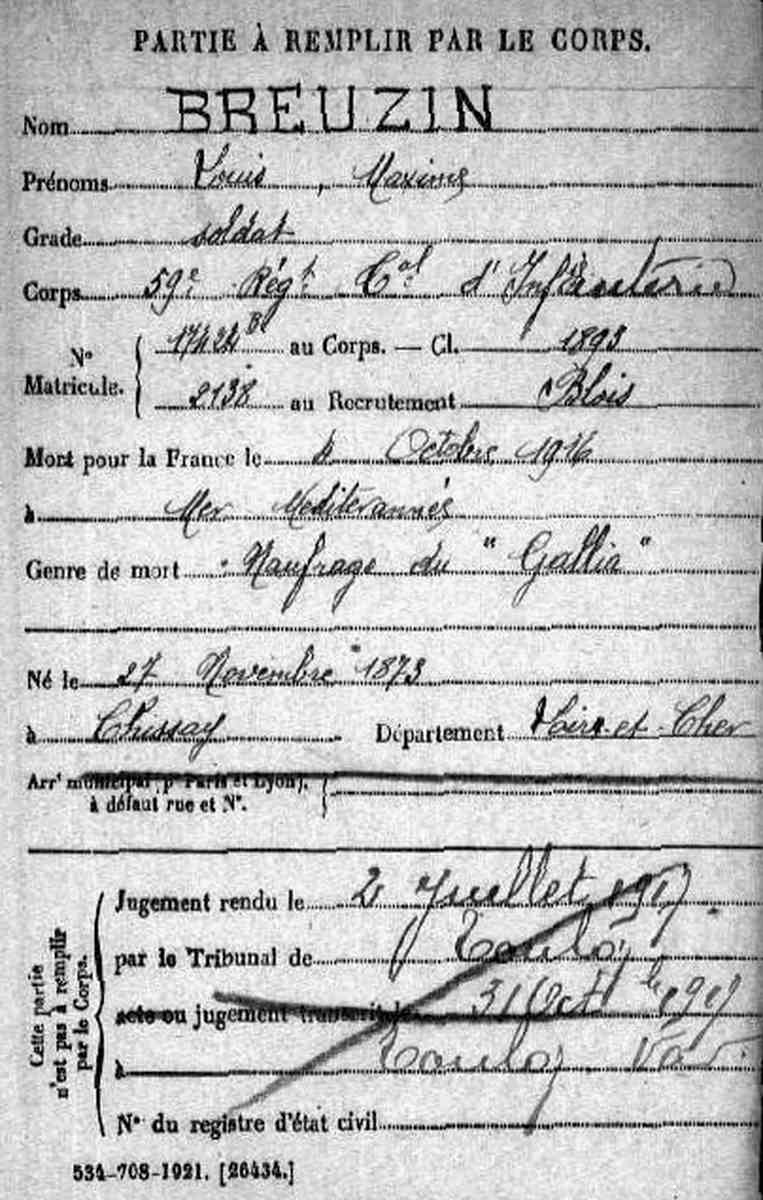 PARTIE À REMPLIR PAR LE CORPS.
Nom BREUZIN
Prénoms Louis, Maxime
Grade soldat
Corps 59e Régt Cal d'Infanterie
No Matricule. 17424 B au Corps. — Cl. 1893
2138 au Recrutement Blois
Mort pour la France le 4 Octobre 1916
à Mer Méditerannée
Genre de mort Naufrage du "Gallia"
Né le 27 Novembre 1873
à Chissay Département Loir-et-Cher
Arrt municipal (pr Paris et Lyon),
à défaut rue et No.
Cette partie n'est pas à remplir par le Corps.
Jugement rendu le 2 Juillet 1917.
par le Tribunal de Toulon
acte ou jugement transcrit le 31 Octbre 1917
à Toulon Var.
No du registre d'état civil
534-708-1921. [26434.]